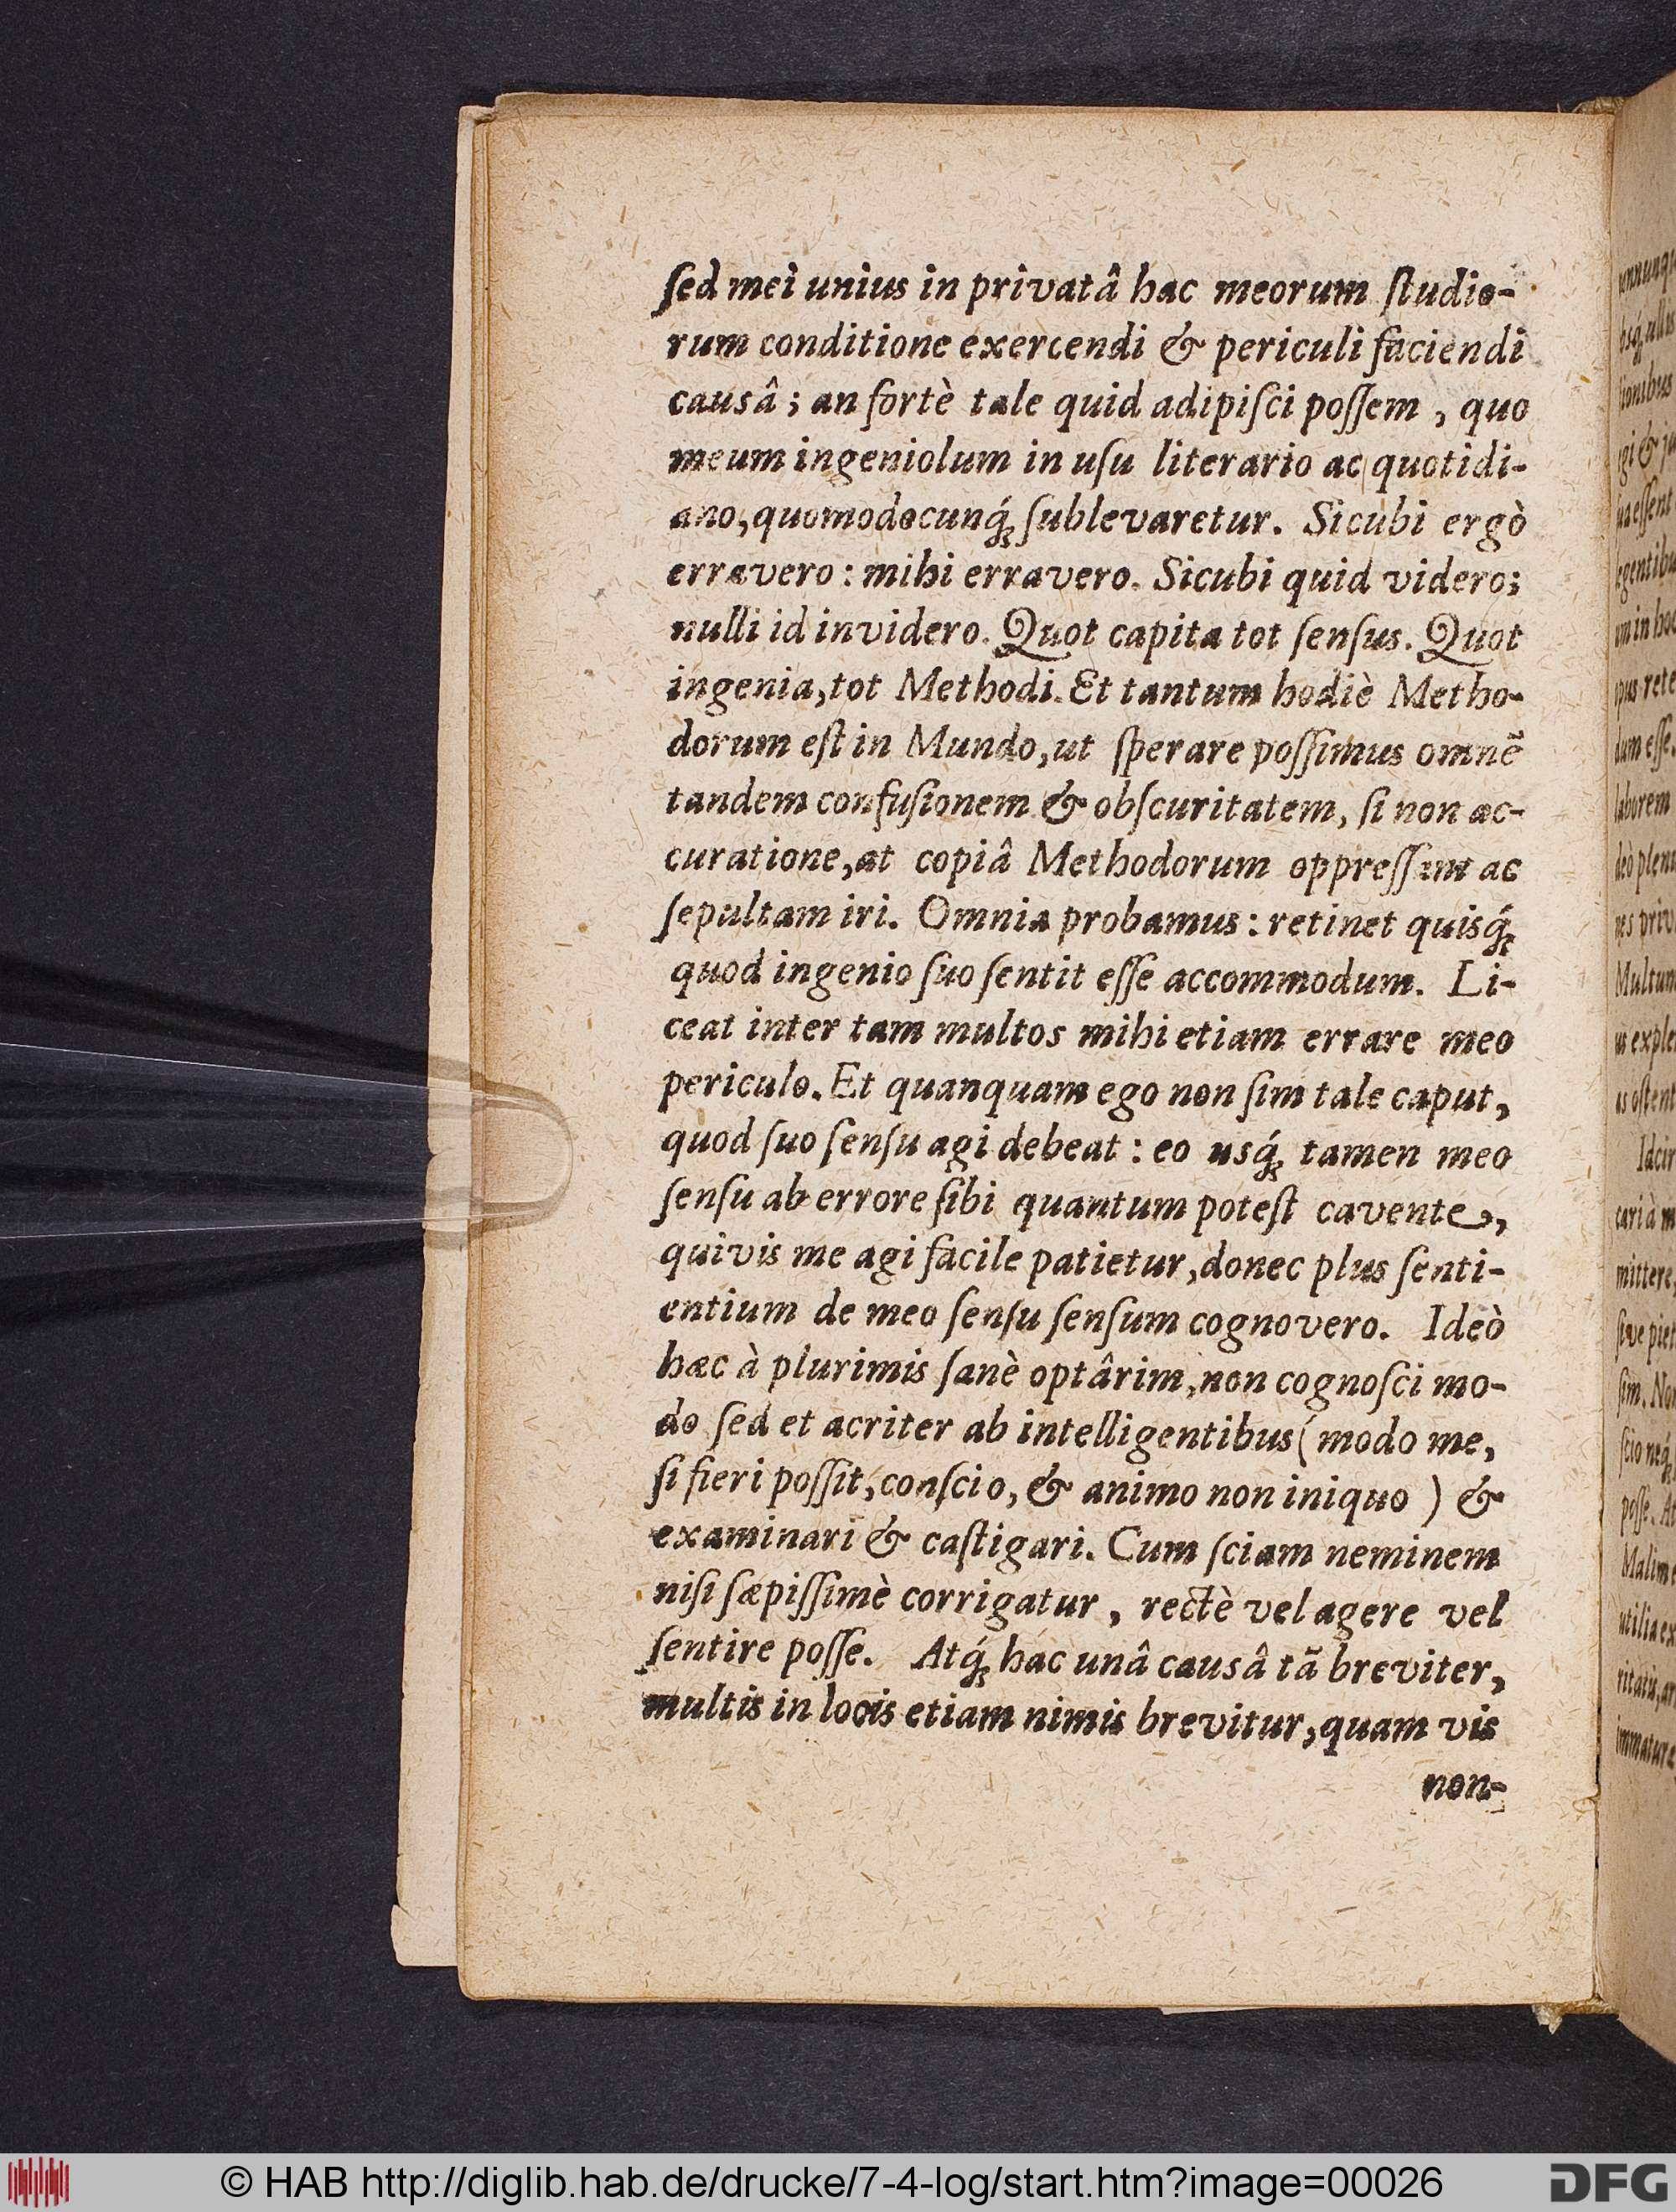 ſed mei unius in privatâ hac meorum ſtudio-
rum conditione exercendi & periculi faciendi
causâ; an fortè tale quid adipiſci poſſem, quo
meum ingeniolum in uſu literario ac quotidi-
ano, quomodocunq́ꝫ ſublevaretur. Sicubi ergò
erravero: mihi erravero. Sicubi quid videro;
nulli id invidero. Quot capita tot ſenſus. Quot
ingenia, tot Methodi. Et tantum hodiè Metho-
dorum eſt in Mundo, ut ſperare poſſimus omnẽ
tandem confuſionem & obſcuritatem, ſi non ac-
curatione, at copiâ Methodorum oppreſſum ac
ſepultam iri. Omnia probamus: retinet quisq́ꝫ
quod ingenio ſuo ſentit eſſe accommodum. Li-
ceat inter tam multos mihi etiam errare meo
periculo. Et quanquam ego non ſim tale caput,
quod ſuo ſenſu agi debeat: eo usq́ꝫ tamen meo
ſenſu ab errore ſibi quantum poteſt cavente,
quivis me agi facile patietur, donec plus ſenti-
entium de meo ſenſu ſenſum cognovero. Ideò
hæc à plurimis ſanè optârim, non cognoſci mo-
do ſed et acriter ab intelligentibus (modo me,
ſi fieri poſſit, conſcio, & animo non iniquo) &
examinari & caſtigari. Cum ſciam neminem
niſi ſæpiſſimè corrigatur, rectè vel agere vel
ſentire poſſe. Atq́ꝫ hac unâ causâ tã breviter,
multis in locis etiam nimis brevitur, quam vis
non-
© HAB http://diglib.hab.de/drucke/7-4-log/start.htm?image=00026
DFG